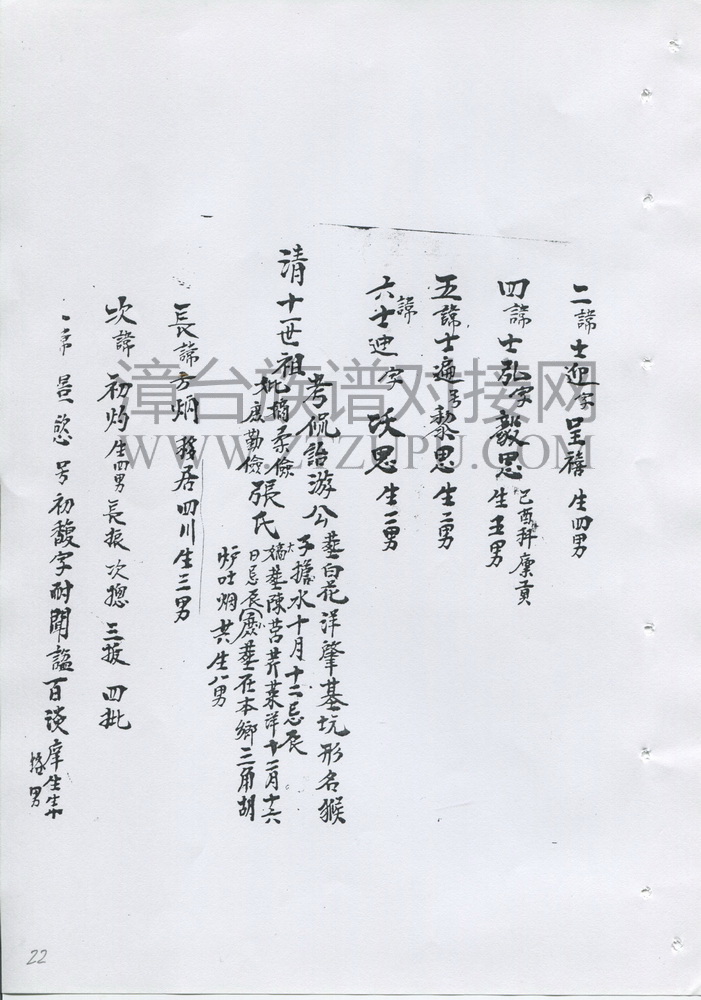 二諱士迎字呈禧生四男
四諱士弘字毅思己酉科廩貢生五男
五諱士遍号黎思生二男
六諱士迎字
思生二男
清十一世祖
考侃詒游公葬白花洋肇基坑形名猴
子擔水十月十二忌辰
妣嫡柔儉
庶勤儉張氏
大嫡葬陳莒芹菜洋十二月十六
日忌辰庶葬在本鄉三角胡
炉吐烟共生八男
長諱方炳移居四川生三男
次諱初灼生四男長振次摠三扳四批
号初馥字耐聞謚百淡庠生生十
男
漳台族谱对接网
WWW.ZTZUPU.COM
22